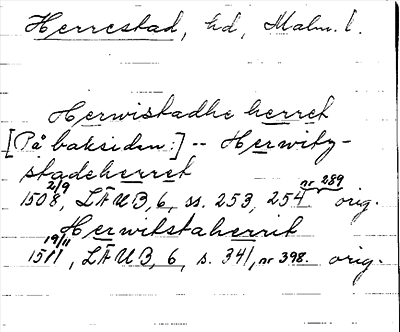 Herrestad, hd, Malm. l.
Herwistadhe herret
[På baksidan:] -- Herwitz-
stadeherret
1508 2/9, LÄUB, 6, ss. 253, 254 nr 289 orig.
Herwitstaherrit
1511 19/11, LÄUB, 6, s. 341, nr 398. orig.